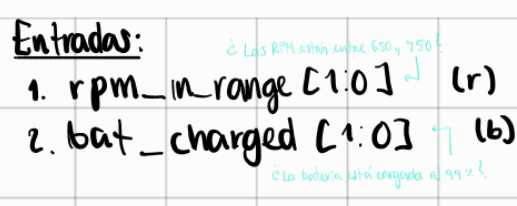 Entradas:
¿Las RPM están entre 650 y 750?
1. rpm_in_range [1:0] (r)
2. bat_charged [1:0] (b)
¿La batería está cargada al 99%?